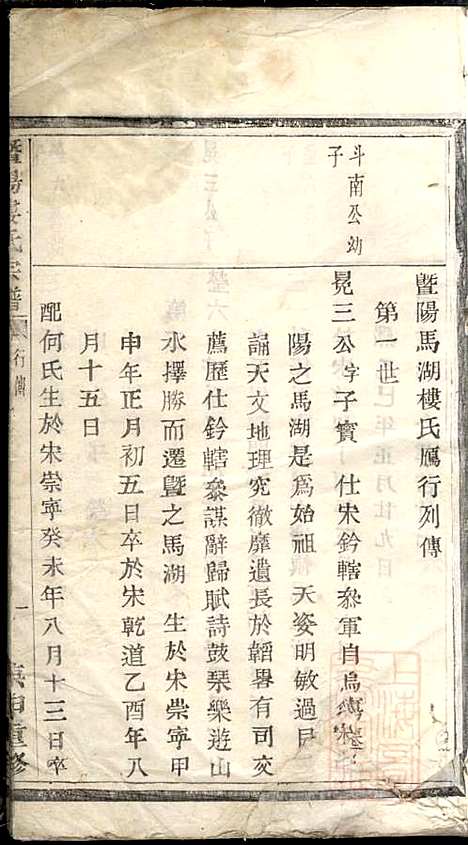 暨陽馬湖樓氏鴈行列傳
第一世
斗南公幼
子
晃三公字子實 仕宋鈐轄叅軍自烏傷
陽之馬湖是爲始祖 天姿明敏過目
誦天文地理究徹靡遺長於韜畧有司交
薦歷仕鈐轄叅謀辭歸賦詩鼓琹樂遊山
水擇勝而遷暨之馬湖 生於宋崇寧甲
申年正月初五日卒於宋乾道乙酉年八
月十五日
配何氏生於宋崇寧癸未年八月十三日卒
暨陽樓氏宗譜
行傳
一
庚申重修